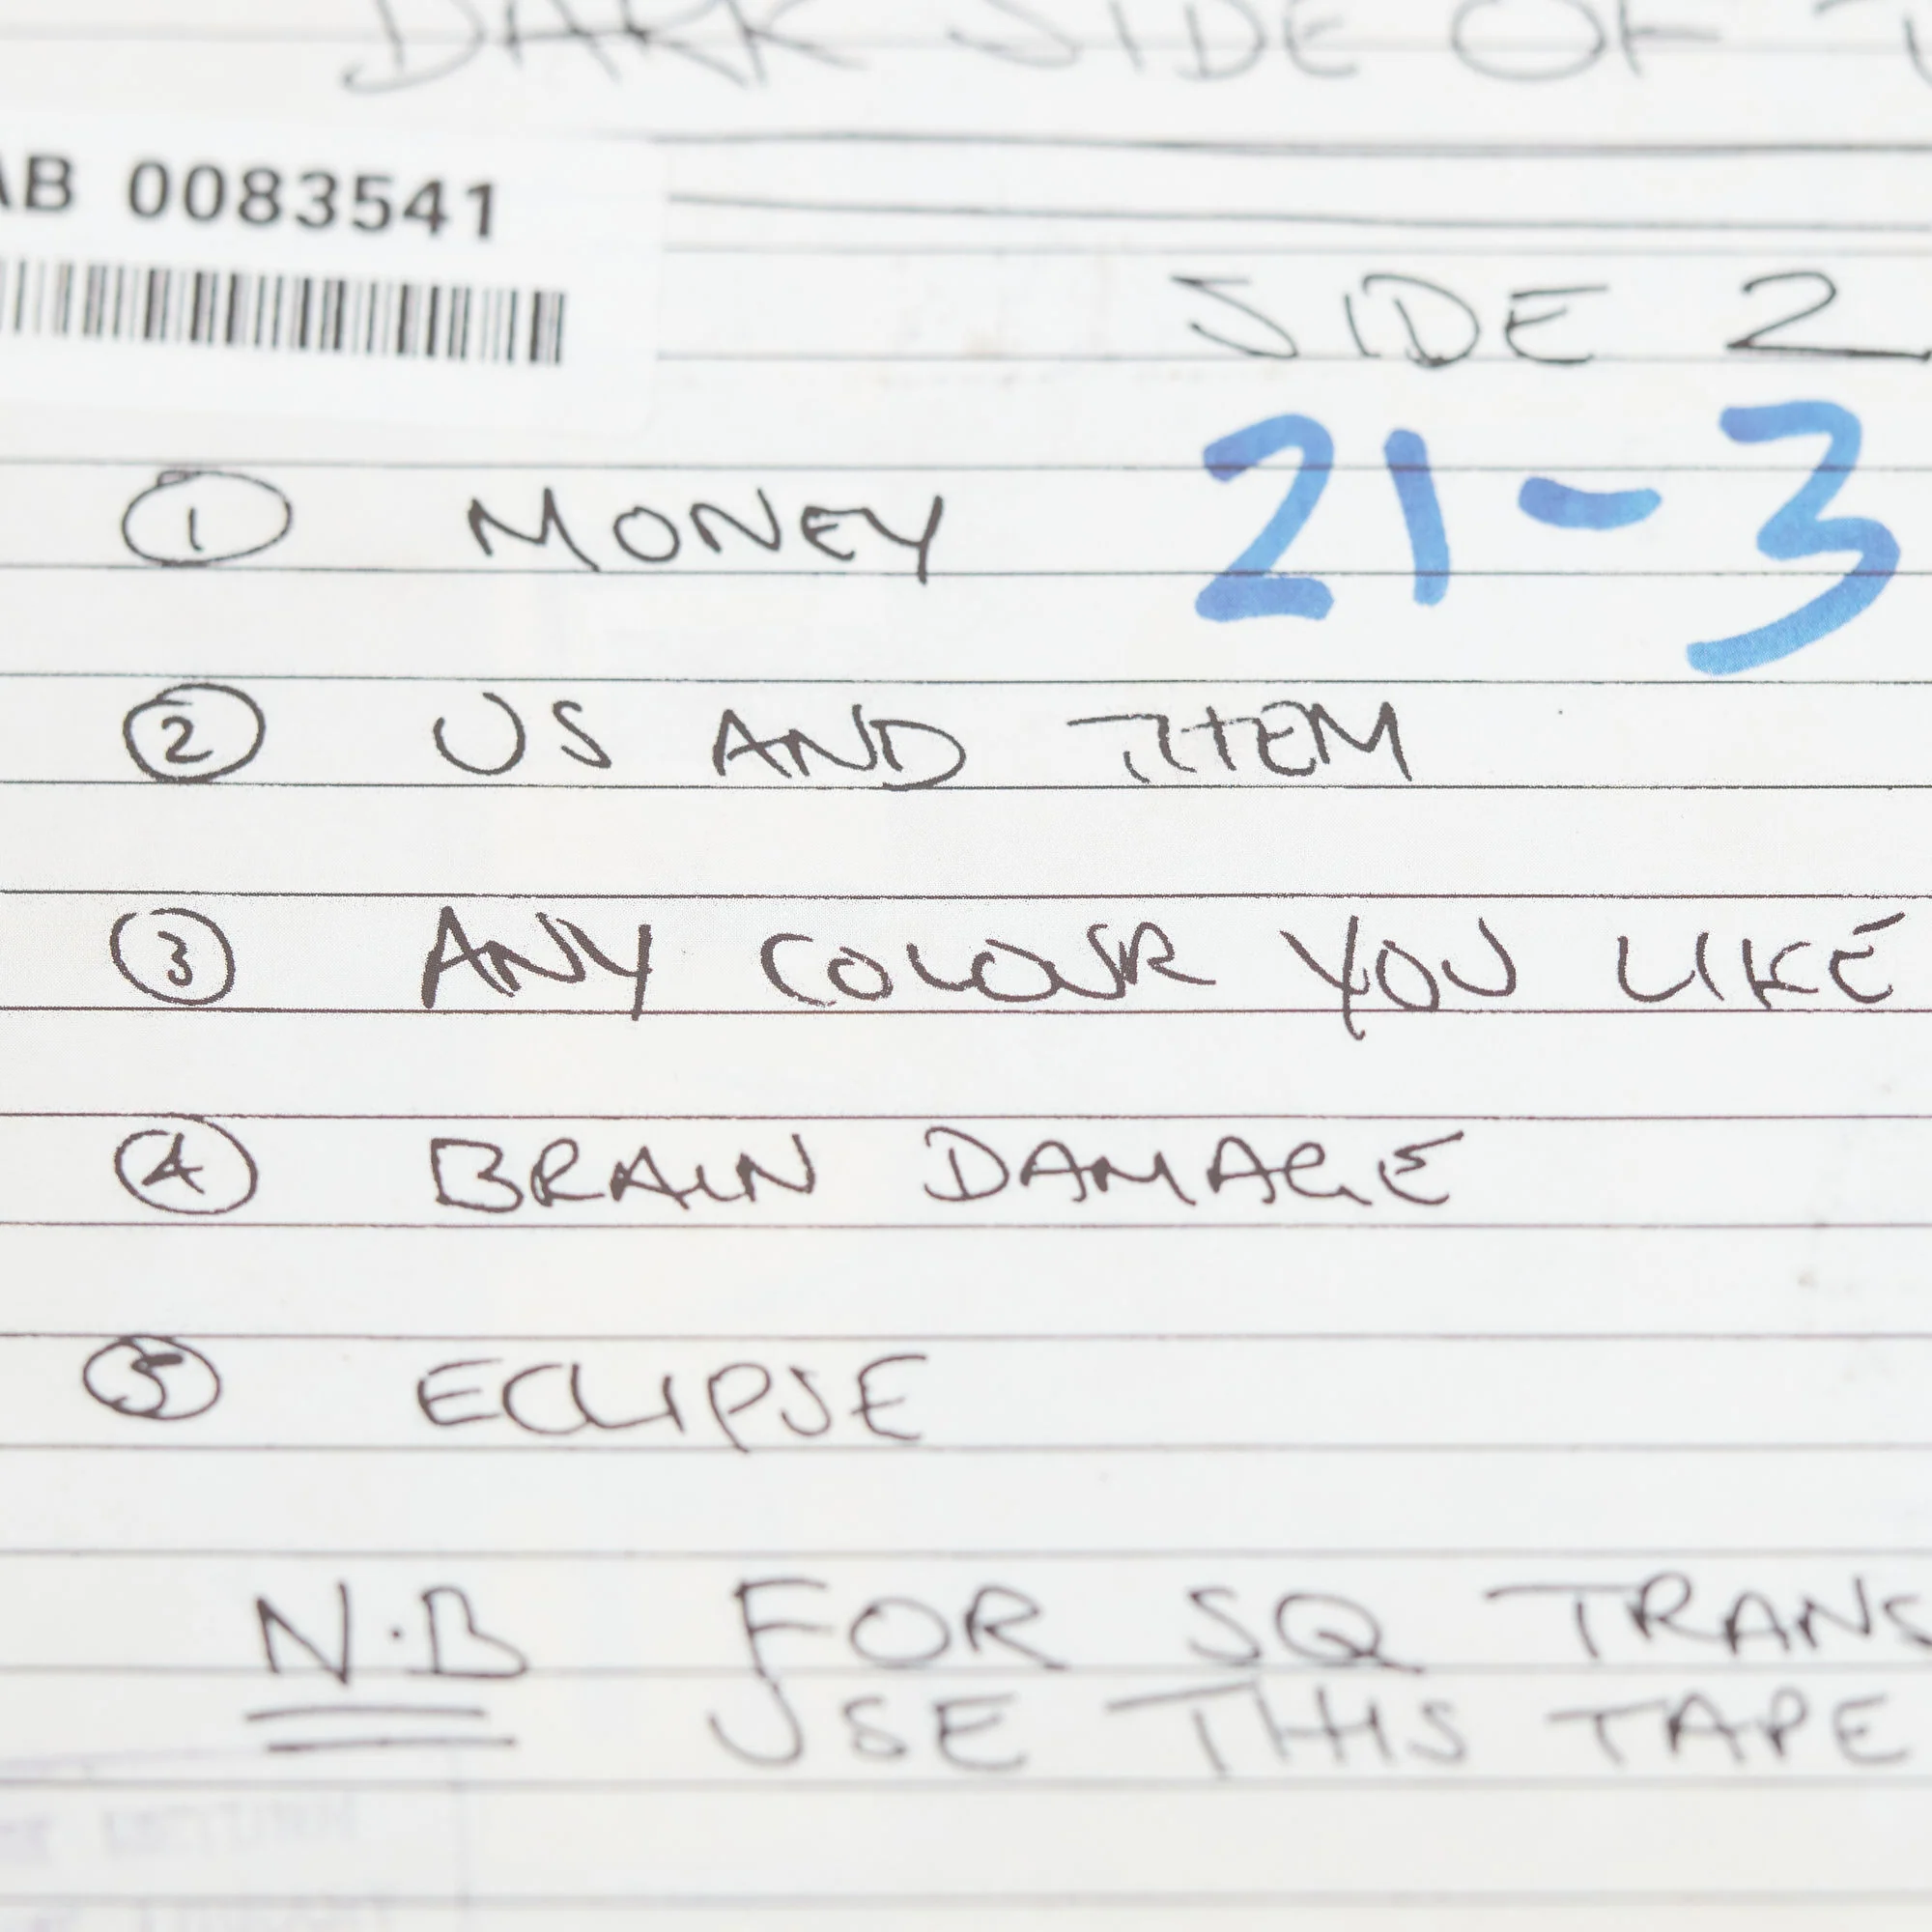 DARK SIDE OF
AB 0083541
SIDE 2
21-3
1 MONEY
2 US AND THEM
3 ANY COLOUR YOU LIKE
4 BRAIN DAMAGE
5 ECLIPSE
N.B FOR SQ TRANS
USE THIS TAPE